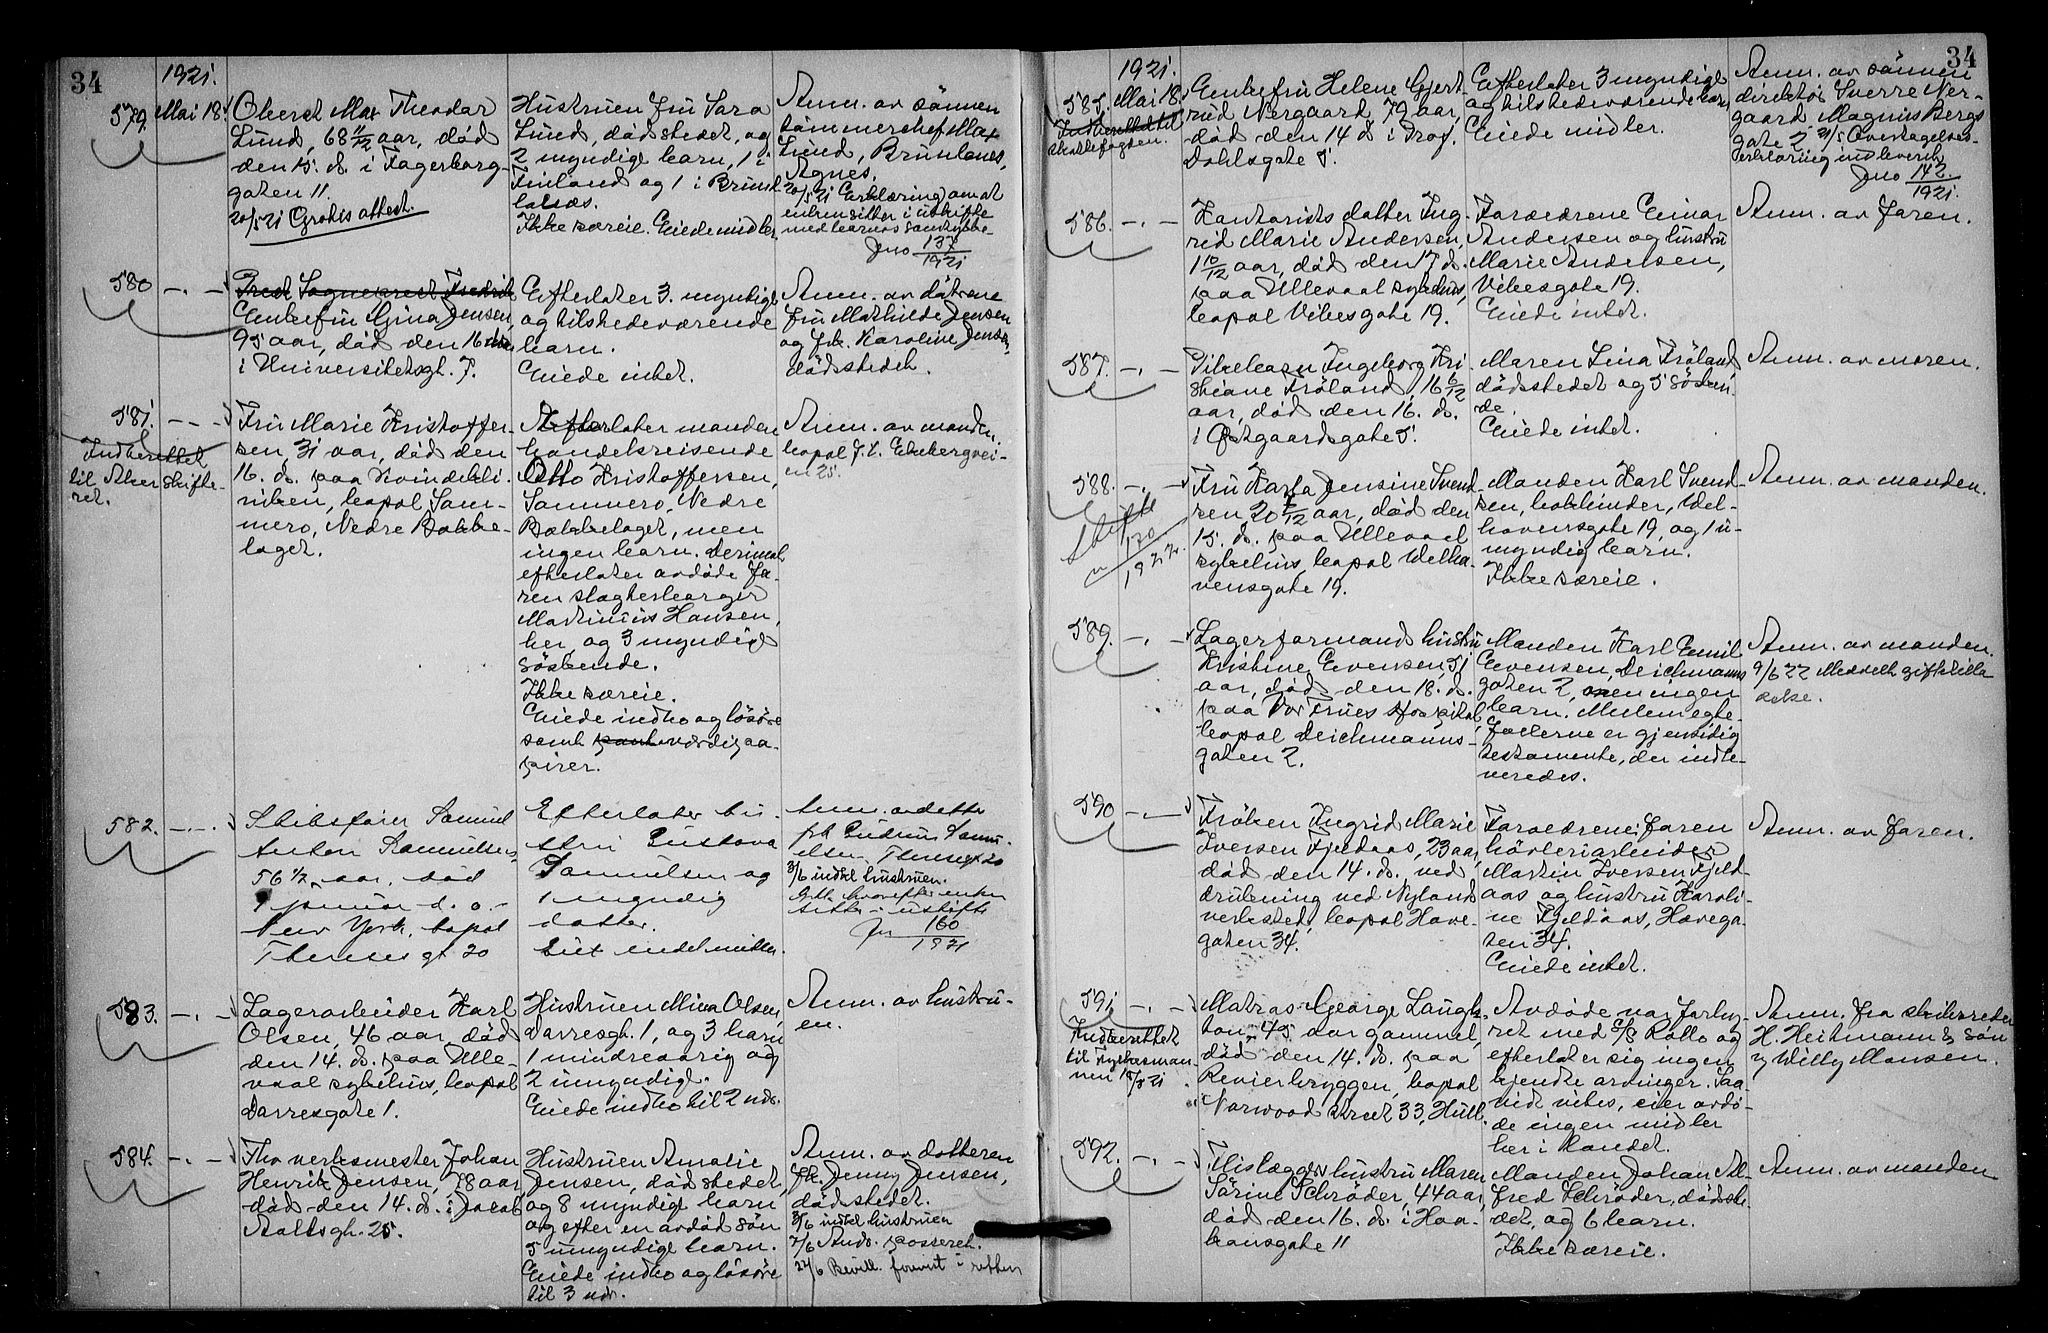 34
1921.
579. Mai 18.
Oberst Max Theodor
Lund, 68 11/12 aar, død
den 15. ds. i Fagerborg-
gaten 11.
20/5 21 Gratis attest.
Hustruen fru Sara
Lund, dødsstedet, og
2 myndige barn, 1 i
Finland og 1 i Brunl.
Ikke særeie. Eiede midler.
Anm. av sønnen
tømmerchef Max
Lund, Brunlanes,
Agnes.
20/5 21 Erklæring om at
enken sitter i uskifte
med barnas samtykke
Jno 137
1921
580 -.-
Enkefru Gina Jensen,
95 aar, død den 16 ds.
i Universitetsgt. 7.
Efterlater 3 myndige
og tilstedeværende
barn.
Eiede intet.
Anm. av døtrene
fru Mathilde Jensen
og frk. Karoline Jensen,
dødsstedet.
581. -.-
Indberettet
til Aker skifte-
ret.
Fru Marie Kristoffer-
sen, 31 aar, død den
16. ds. paa Kvindekli-
niken, bopal Sam-
mero, Nedre Bakke-
laget.
Efterlater manden
handelsreisende
Otto Kristoffersen,
Sammero, Nedre
Bakkelaget, men
ingen barn. Derimot
efterlater avdøde fa-
ren slagterborger
Martinius Hansen,
her, og 3 myndige
søskende.
Ikke særeie.
Eiede indbo og løsøre
samt værdipa-
pirer.
Anm. av manden,
bopal Ekebergvei-
en 25.
582. -.-
Skibsfører Samuel
Anton Samuelsen,
56 1/2 aar, død
januar d. a. i
New York, bopal
Thereses gt 20
Efterlater hu-
stru Gustava
Samuelsen og
1 myndig
datter.
Anm. av dette
frk Gudrun Samu-
elsen Theresegt 20
3/6 indkl hustruen.
sitter i uskifte
Jno 160
1921
583. -.-
Lagerarbeider Karl
Olsen, 46 aar, død
den 14. ds. paa Ulle-
vaal sykehus, bopal
Darresgate 1.
Hustruen Mina Olsen,
Darresgt. 1, og 3 barn
1 mindreaarig og
2 umyndige.
Eiede indbo til 2 nds.
Anm. av hustru-
en.
584. -.-
Fhv verksmester Johan
Henrik Jensen, 78 aar,
død den 14. ds. i Jacob
Aallsgt. 25.
Hustruen Amalie
Jensen, dødsstedet,
og 8 myndige barn
og efter en avdød søn
5 umyndige barn.
Eiede indbo og løsøre
til 3 nds.
Anm. av datteren
frk. Jenny Jensen,
dødsstedet.
3/6 indkl hustruen
7/6 Ands. passeret.
27/6 Bevill. foreviist i retten
34
1921.
585. Mai 18.
Indberettet til
skattefogden.
Enkefru Helene Gjert-
rud Nergaard, 79 aar,
død den 14 ds i Prof.
Dahlsgate 5.
Efterlater 3 myndige
og tilstedeværende barn.
Eiede midler.
Anm. av sønnen
direktør Sverre Ner-
gaard Magnus Bergs
gate 2 Overtagelses-
erklæring indleveret
Jno 142
1921.
586. -.-
Kontorists datter Ing-
rid Marie Andersen,
1 10/12 aar, død den 17 ds.
paa Ullevaal sykehus,
bopal Vibesgate 19.
Forældrene Einar
Andersen og hustru
Marie Andersen,
Vibesgate 19.
Eiede intet.
Anm. av faren.
587. -.-
Pikebarn Ingeborg Kri-
stiane Frøland, 16 6/12
aar, død den 16. ds.
i Østgaardsgate 5.
Moren Lina Frøland
dødsstedet og 5 søsken-
de.
Eiede intet.
Anm. av moren.
588. -.-
Skifte
130
1922.
Fru Karla Jensine Svend-
sen 20 /12 aar, død den
15. ds. paa Ullevaal
sykehus, bopal Welha-
vensgate 19.
Manden Karl Svend-
sen, bokbinder, Wel-
havensgate 19, og 1 u-
myndig barn.
Ikke særeie.
Anm. av manden.
589. -.-
Lagerformands hustru
Kristine Evensen, 51
aar, død den 18. ds.
paa Vor Frues Hospital,
bopal Deichmanns-
gaten 2.
Manden Karl Emil
Evensen, Deichmanns
gaten 2, men ingen
barn. Mellem egte-
fællerne er gjensidig
testamente, der indle-
veredes.
Anm. av manden.
9/6 22 Meddelt giftetilla
delse.
590 -.-
Frøken Ingrid Marie
Iversen Fjeldaas, 23 aar,
død den 14. ds. ved
drukning ved Nylands
verksted, bopal Have-
gaten 34.
Forældrene: faren
høvleriarbeider
Martin Iversen Fjeld-
aas og hustru Karoli-
ne Fjeldaas, Havega-
ten 34.
Eiede intet.
Anm. av faren.
591 -.-
Indberettet
til Fylkesman-
nen
Matros George Laugh-
ton, 45 aar gammel,
død den 14. ds. paa
Revierbryggen, bopal
Norwood street 33, Hull.
Avdøde var forhy-
ret med S/S Rollo og
efterlater sig ingen
kjendte arvinger. Saa-
vidt vites, eier avdø-
de ingen midler
her i landet.
Anm. fra skibsreder
H. Heitmann & Søn
v/ Willy Monsen.
592. -.-
Flislægger hustru Maren
Sørine Schrøder, 44 aar,
død den 16. ds. i Haa-
konsgate 11
Manden Johan Al-
fred Schrøder, dødsste-
det, og 6 barn.
Ikke særeie.
Anm. av manden